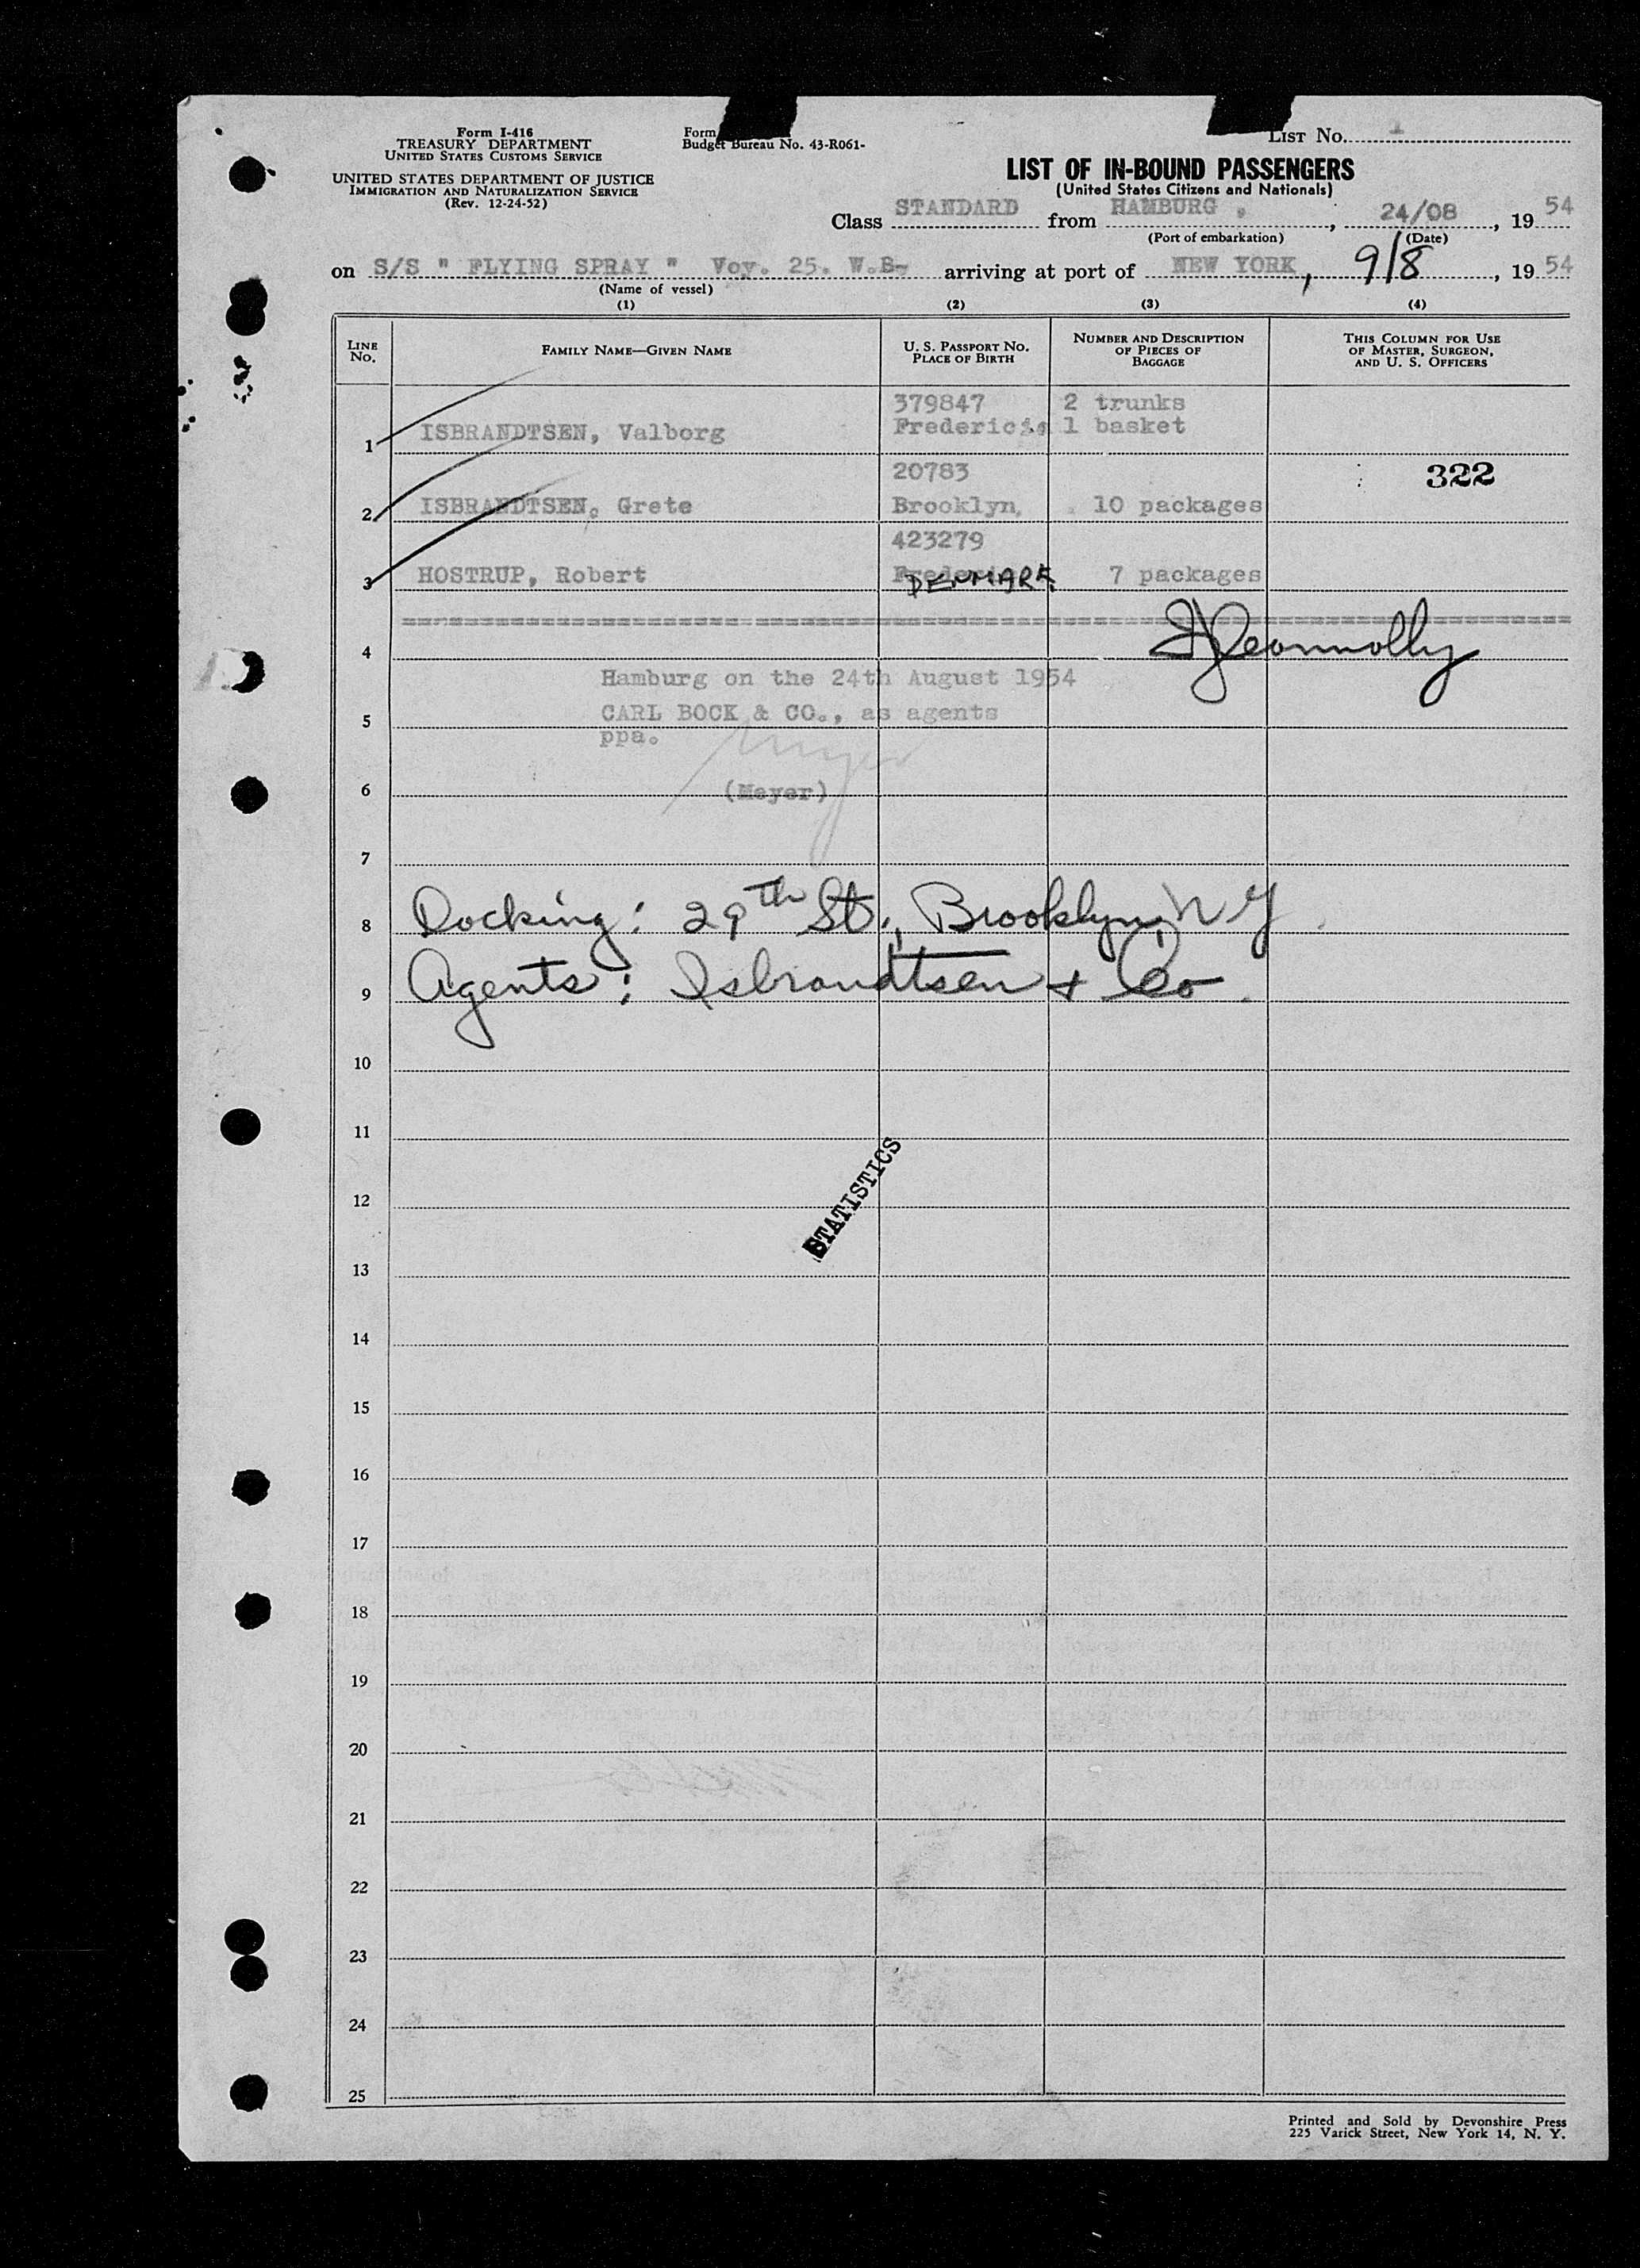 Form I-416
TREASURY DEPARTMENT
UNITED STATES CUSTOMS SERVICE
UNITED STATES DEPARTMENT OF JUSTICE
IMMIGRATION AND NATURALIZATION SERVICE
(Rev. 12-24-52)
Form
Budget Bureau No. 43-R061-
LIST No. 1
LIST OF IN-BOUND PASSENGERS
(United States Citizens and Nationals)
Class STANDARD from HAMBURG , , 24/08 , 19 54
(Port of embarkation) (Date)
on S/S " FLYING SPRAY " Voy. 25. W.B- arriving at port of NEW YORK, 9/8 , 19 54
(Name of vessel)
(1) (2) (3) (4)
LINE No. FAMILY NAME—GIVEN NAME U. S. PASSPORT No. PLACE OF BIRTH NUMBER AND DESCRIPTION OF PIECES OF BAGGAGE THIS COLUMN FOR USE OF MASTER, SURGEON, AND U. S. OFFICERS
379847 2 trunks
1 ISBRANDTSEN, Valborg 1 basket
20783 322
2 ISBRANDTSEN, Grete Brooklyn, 10 packages
423279
3 HOSTRUP, Robert DENMARK 7 packages
4
Hamburg on the 24th August 1954
5 CARL BOCK & CO., as agents
ppa.
6 (Meyer)
7
8 Docking: 29th St., Brooklyn, N Y
9 Agents: Isbrandtsen + Co
10
11
12
STATISTICS
13
14
15
16
17
18
19
20
21
22
23
24
25
Printed and Sold by Devonshire Press
225 Varick Street, New York 14, N. Y.